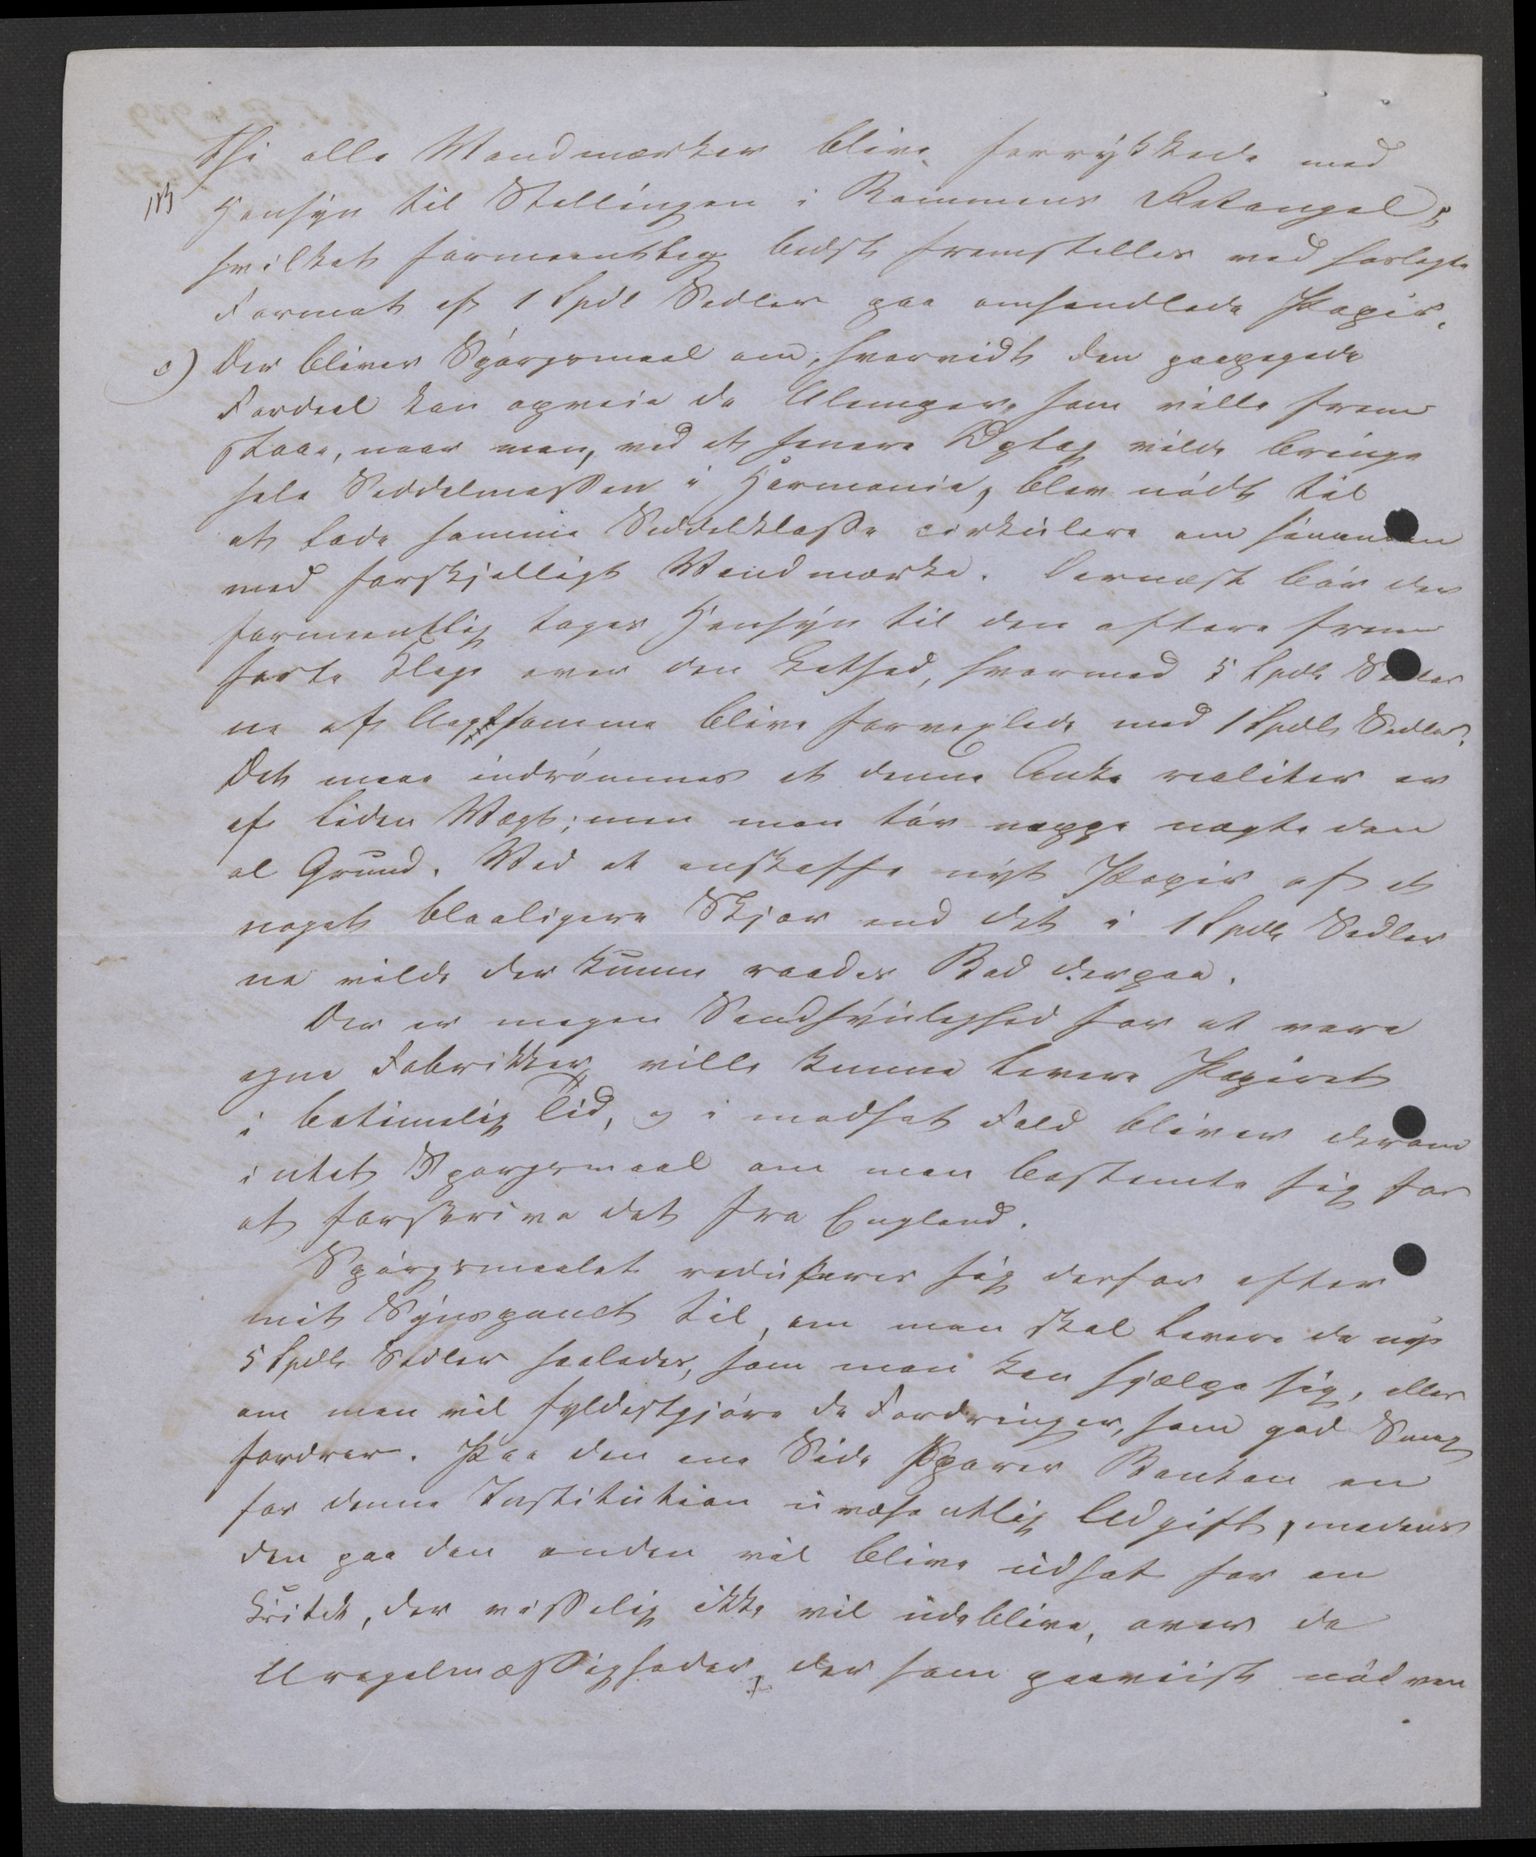 thi alle Vandmærker blive forrykkede med
Hensyn til Stillingen i Rammens Rektangel,
hvilket formeentlig bedst fremstilles ved hoslagte
Format af 1 Spdl Sedler paa omhandlede Papir.
c) Der bliver Spørgsmaal om, hvorvidt den paapegede
Fordeel kan opveie de Ulemper, som ville frem
staae, naar man, ved et senere Oplag vilde bringe
hele Seddelmassen i Harmonie, blev nødt til
at lade samme Seddelklasse cirkulere om hinanden
med forskjelligt Vandmærke. Dernæst bør der
formeentlig tages Hensyn til den oftere frem
førte Klage over den Lethed, hvormed 5 Spdl Sedler
ne af Uopmærksomme blive forvexlede med 1 Spdl Sedler.
Det maa indrømmes at denne Anke realiter er
af liden Vægt; men man tør neppe nægte den
al Grund. Ved at anskaffe nyt Papir af et
noget blaaligere Skjær end det i 1 Spdl Sedler
ne vilde der kunne raades Bod derpaa.
Der er megen Sandsynlighed for at vore
egne Fabrikker ville kunne levere Papiret
i betimelig Tid, og i modsat Fald bliver derom
intet Spørgsmaal om man bestemte sig for
at forskrive det fra England.
Spørgsmaalet reducerer sig derfor efter
mit Synspunct til, om man skal levere de nye
5 Spdl Sedler saaledes, som man kan hjælpe sig, eller
om man vil fyldestgjøre de Fordringer, som god Smag
fordrer. Paa den ene Side sparer Banken en
for denne Institution uvæsentlig Udgift, medens
den paa den anden vil blive udsat for en
Kritik, der visselig ikke vil udeblive, over de
Uregelmæssigheder, der som paaviist nødven